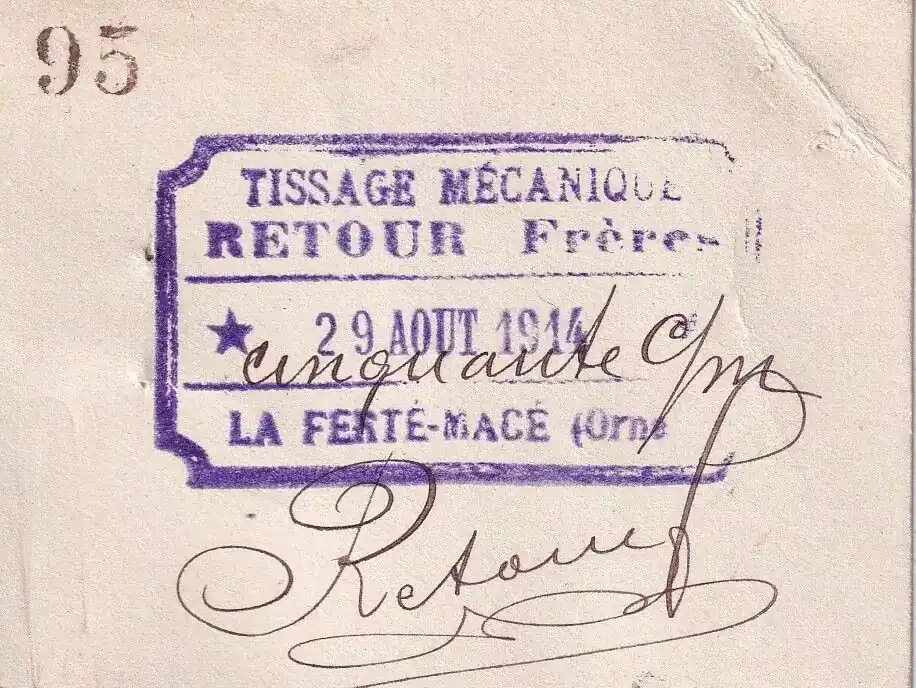 95
TISSAGE MÉCANIQUE
RETOUR Frères
★ 29 AOUT 1914
cinquante c/m
LA FERTÉ-MACÉ (Orne
Retour